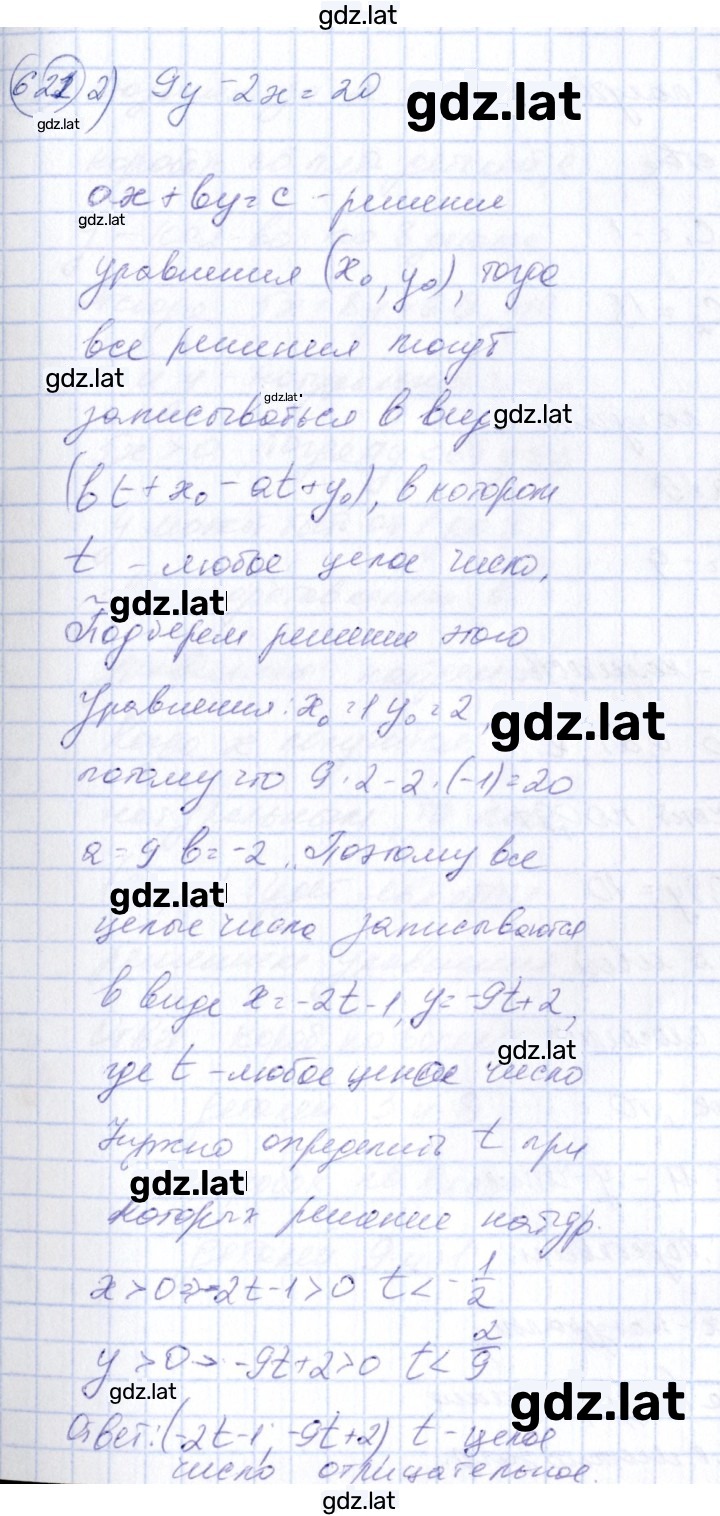 gdz.lat
621 2) 9y - 2x = 20
gdz.lat
gdz.lat
ax + by = c - решение
gdz.lat
уравнения (x₀, y₀), тогда
все решения могут
gdz.lat
gdz.lat
записываться в вид
gdz.lat
(bt + x₀ - at + y₀), в котором
t - любое целое число,
gdz.lat
Подберем решение этого
уравнения: x₀ = 1 y₀ = 2,
gdz.lat
потому что 9 · 2 - 2 · (-1) = 20
a = 9 b = -2. Поэтому все
gdz.lat
целые числа записываются
в виде x = -2t - 1, y = -9t + 2,
gdz.lat
где t - любое целое число
Нужно определить t при
gdz.lat
которых решение натур.
x > 0 => -2t - 1 > 0 t < - 1/2
y > 0 -> -9t + 2 > 0 t < 2/9
gdz.lat
gdz.lat
Ответ: (-2t - 1; -9t + 2) t - целое
число отрицательное.
gdz.lat